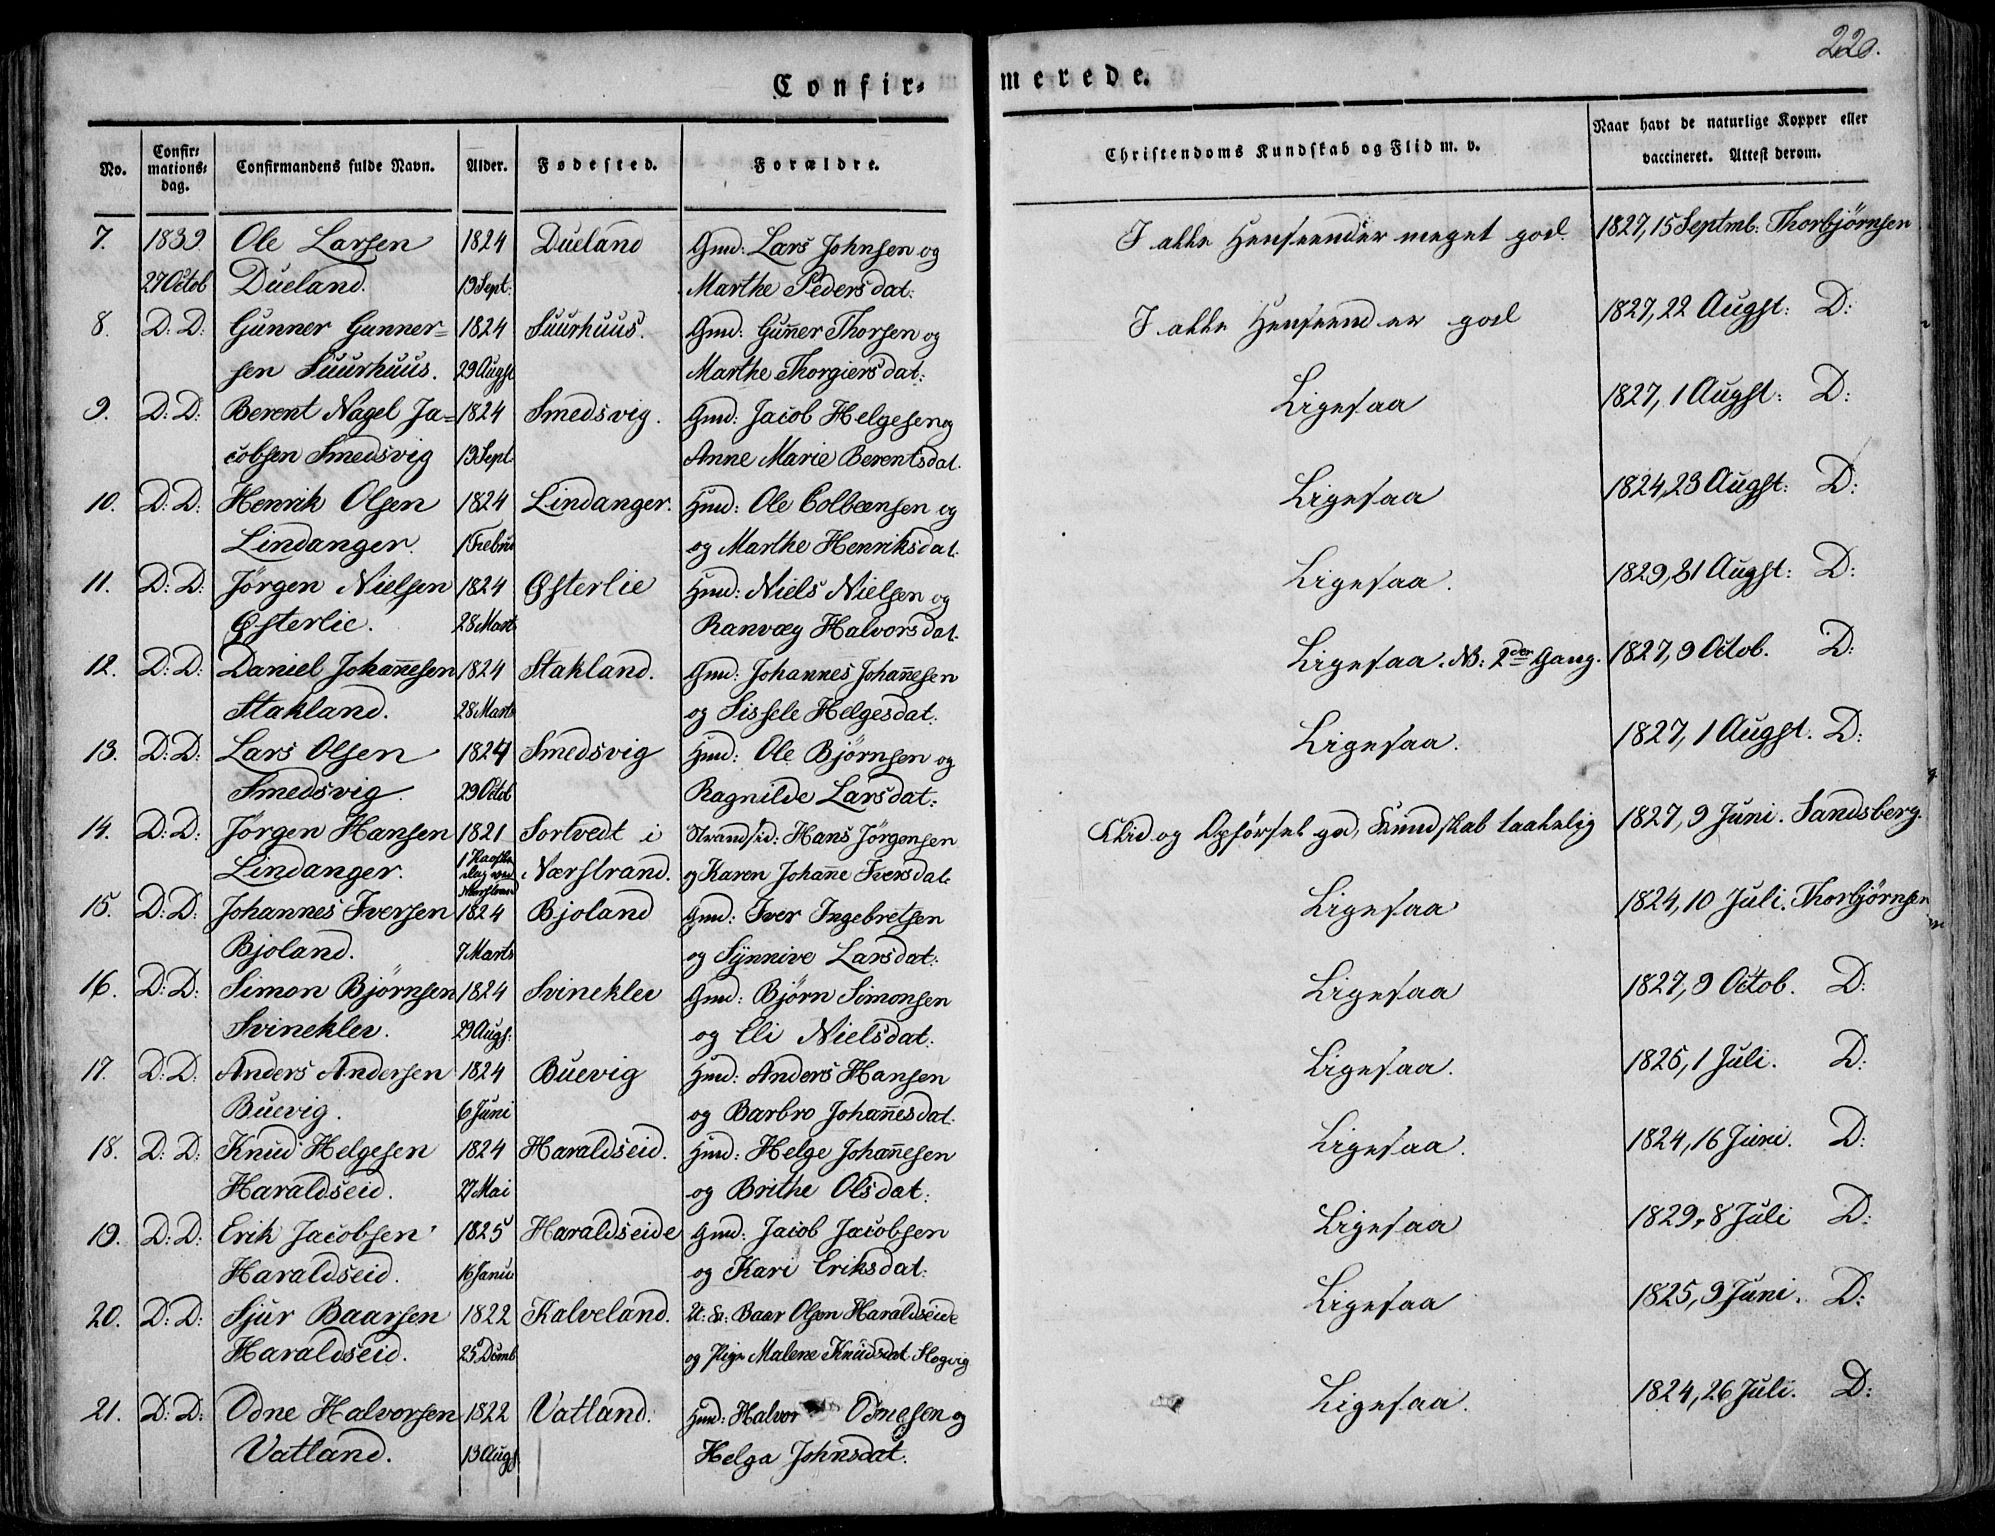 220.
Confir-
merede.
No.
Confir-
mations-
dag.
Confirmandens fulde Navn.
Alder.
Fødested.
Forældre.
Christendoms Kundskab og Flid m. v.
Naar havt de naturlige Kopper eller
vaccineret. Attest derom.
7. 1839. Ole Larsen 1824 Dueland Gmd: Lars Johnsen og I alle Henseender meget god. 1827, 15 Septmb: Thorbjørnsen
27 Octob Dueland. 19 Sept: Marthe Pedersdat:
8. D: D: Gunner Gunner= 1824 Suurhuus. Gmd: Gun̄er Thorsen og I alle Henseender god 1827, 22 Augst: D:
sen Suurhuus. 29 Augst Marthe Thorgiersdat:
9. D: D: Berent Nagel Ja= 1824 Smedsvig. Gmd: Jacob Helgesen og Ligesaa 1827, 1 Augst: D:
cobsen Smedsvig 19 Sept. Anne Marie Berentsdat.
10. D: D: Henrik Olsen 1824 Lindanger. Hmd: Ole Colbeensen og Ligesaa 1824, 23 Augst: D:
Lindanger. 1 Febru og Marthe Henriksdat.
11. D: D: Jörgen Nielsen 1824 Østerlie Hmd: Niels Nielsen og Ligesaa. 1829, 31 Augst: D:
Østerlie. 28 Marts Ranvæg Halvorsdat.
12. D: D: Daniel Johan̄esen 1824 Stakland. Gmd: Johannes Johan̄esen Ligesaa. NB: 2den Gang. 1827, 9 Octob. D:
Stakland. 28 Marts og Sissele Helgesdat.
13. D: D: Lars Olsen 1824 Smedsvig Hmd: Ole Bjørnsen og Ligesaa. 1827, 1 Augst. D:
Smedsvig. 29 Octob Ragnilde Larsdat:
14. D: D: Jørgen Hansen 1821 Sortvedt i Strandsid: Hans Jørgensen Flid og Opførsel god, Kundskab taalelig 1827, 9 Juni. Sandsberg.
Lindanger. Nærstrand. og Karen Johan̄e Iversdat.
15. D: D: Johannes Iversen 1824 Bjoland Gmd: Iver Ingebretsen Ligesaa 1824, 10 Juli. Thorbjørnsen
Bjoland. 7 Marts og Synnive Larsdat:
16. D: D: Simon Bjørnsen 1824 Svinekler Gmd: Bjørn Simonsen Ligesaa 1827, 9 Octob. D:
Svinekler. 29 Augs: og Eli Nielsdat:
17. D: D: Anders Andersen 1824 Buevig Hmd: Anders Hansen Ligesaa. 1825, 1 Juli. D:
Buevig. 6 Juni og Barbro Johan̄esdat.
18. D: D: Knud Helgesen 1824 Haraldseid. Hmd: Helge Johan̄esen Ligesaa. 1824, 16 Juni. D:
Haraldseid. 27 Mai og Brithe Olsdat:
19. D: D: Erik Jacobsen 1825 Haraldseide Gmd: Jacob Jacobsen Ligesaa 1829, 8 Juli D:
Haraldseid. 16 Janu og Kari Eriksdat:
20. D: D: Sjur Baarsen 1822 Kalveland. Baar Olsen Haraldseide Ligesaa 1825, 9 Juni. D:
Haraldseid. 25 Dcmb og Pige Malene Knudsdat Slogvig
21. D: D: Odne Halvorsen 1822 Vatland. Hmd: Halvor Odnesen og Ligesaa. 1824, 26 Juli. D:
Vatland. 13 Augs Helga Johnsdat.